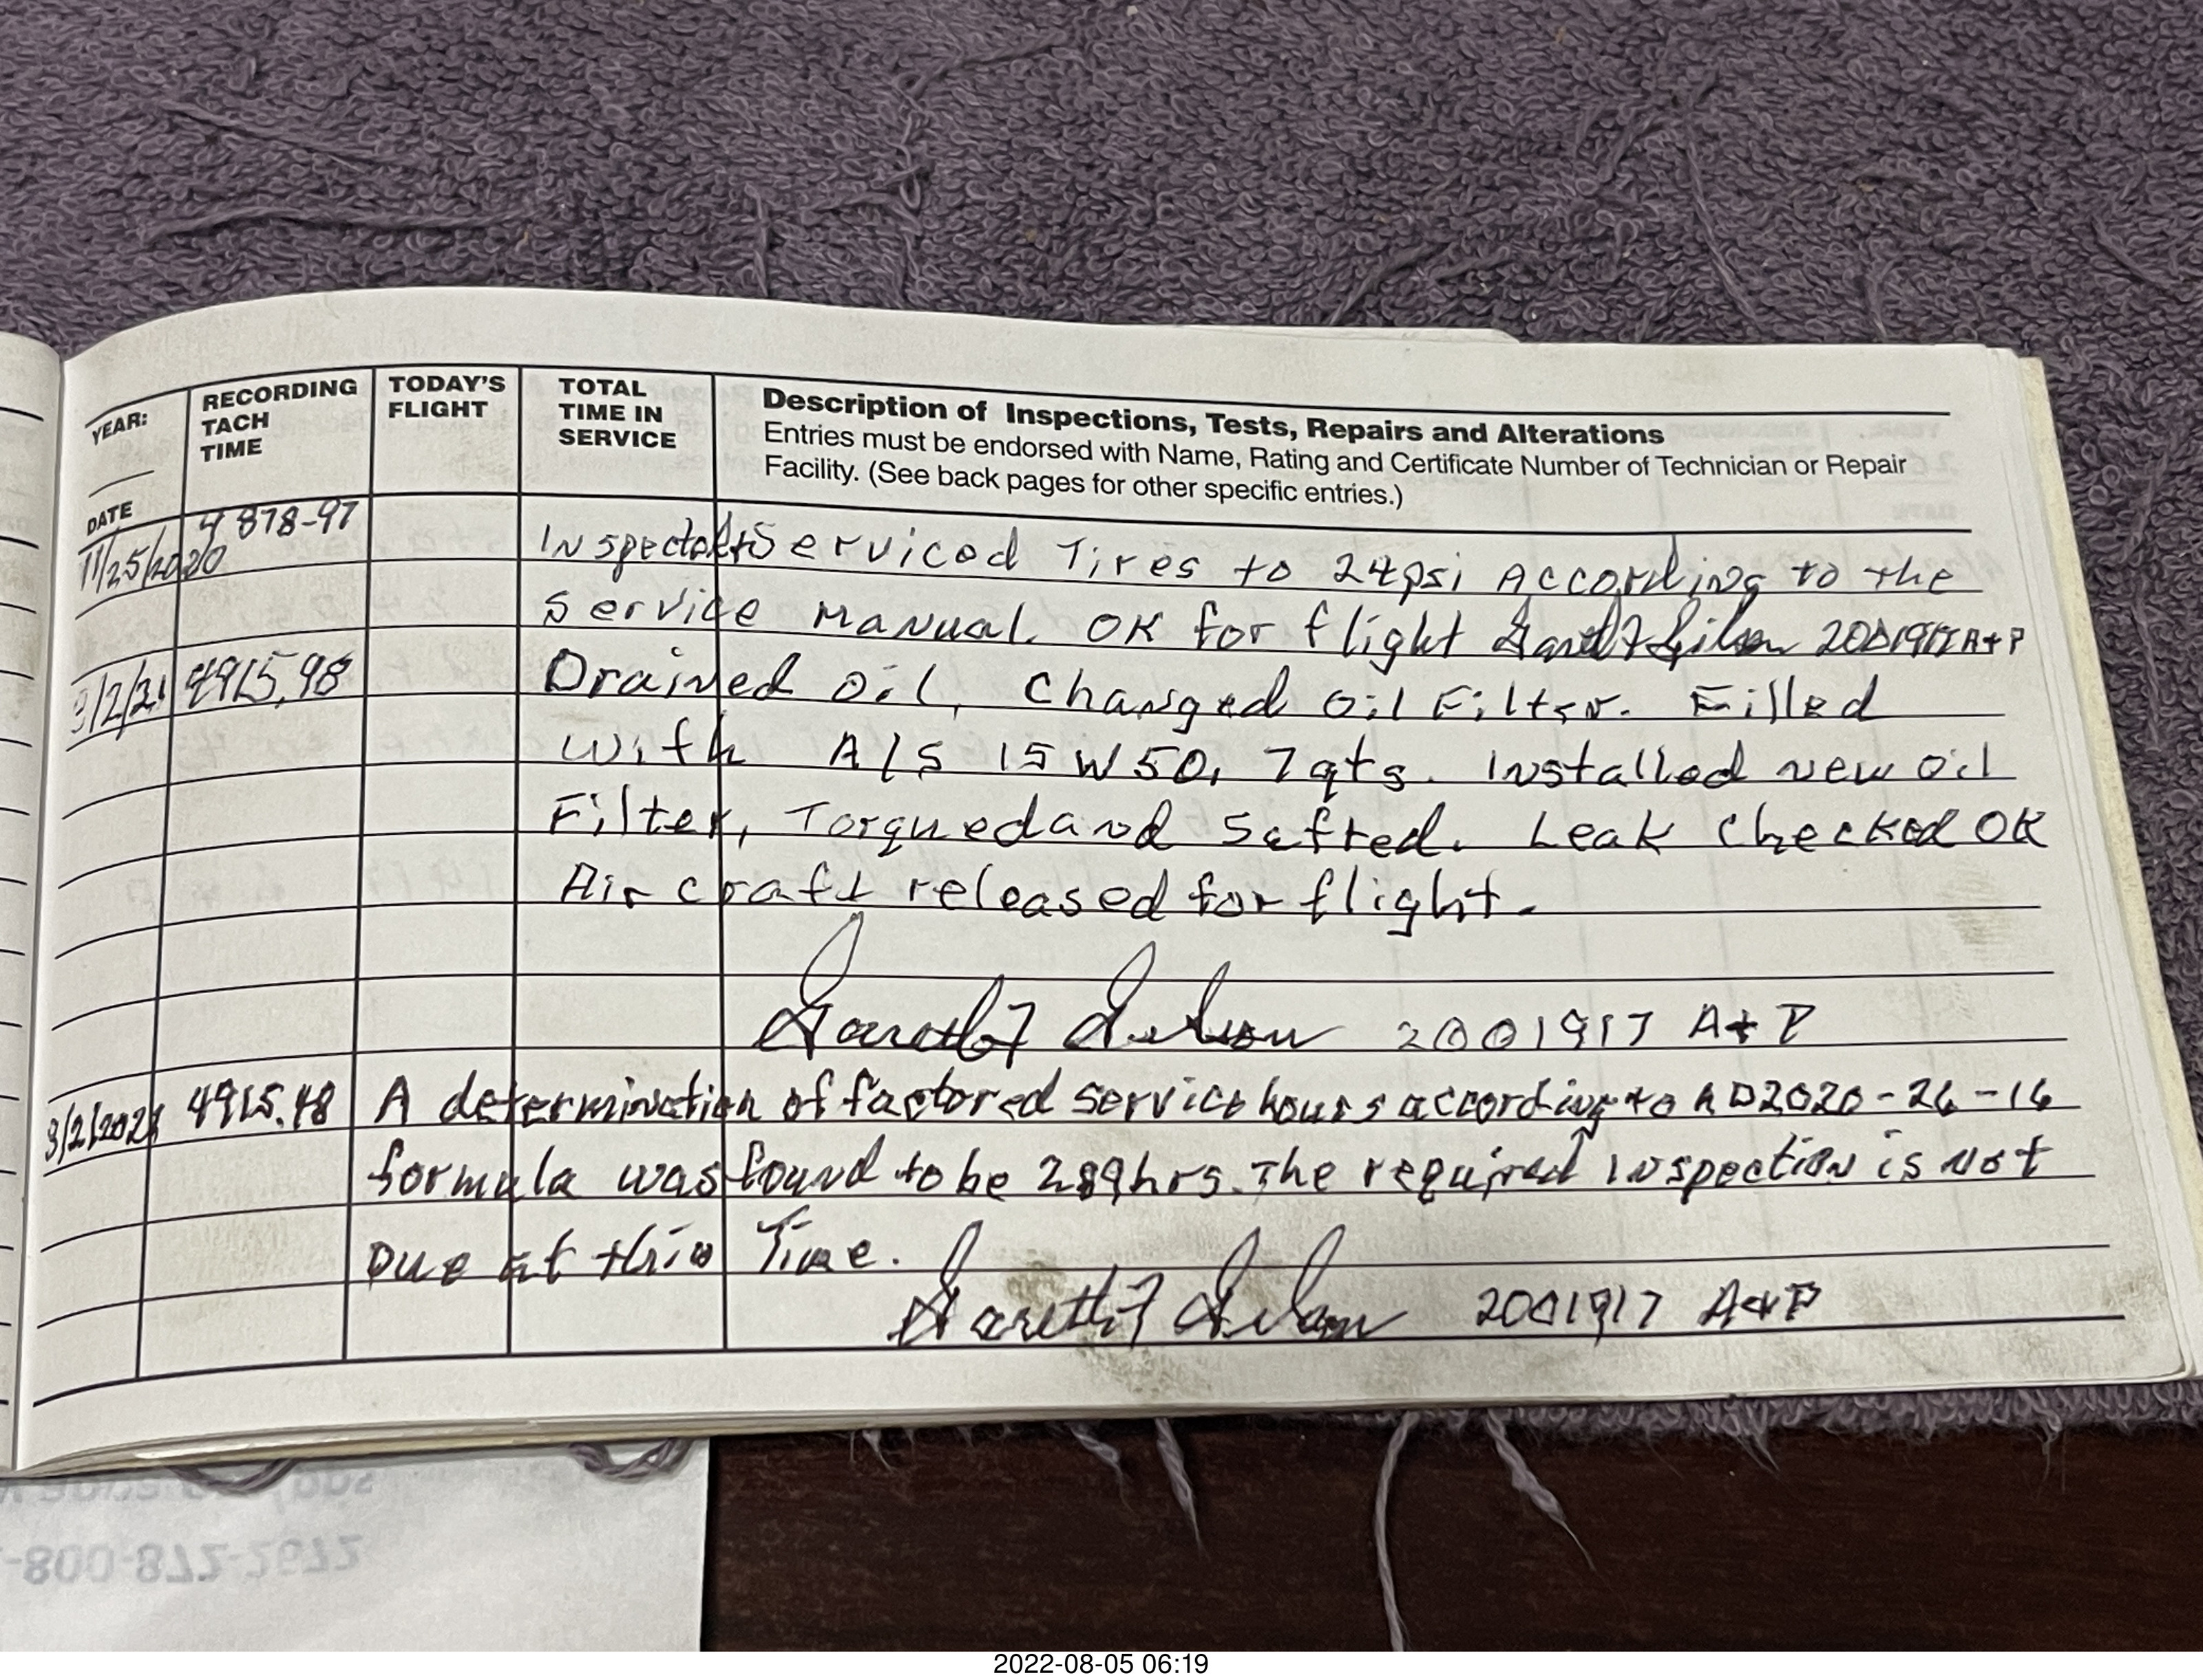 YEAR: RECORDING TACH TIME TODAY'S FLIGHT TOTAL TIME IN SERVICE Description of Inspections, Tests, Repairs and Alterations
Entries must be endorsed with Name, Rating and Certificate Number of Technician or Repair
Facility. (See back pages for other specific entries.)
DATE
11/25/2020 4878-97 Inspected+Serviced Tires to 24psi According to the
service manual. OK for flight 2001917 A+P
3/2/21 4915.98 Drained oil, Changed oil Filter. Filled
with A/S 15W50, 7qts. Installed new oil
Filter, Torqued and Safted. Leak Checked OK
Aircraft released for flight.
2001917 A+P
3/2/2021 4915.98 A determination of factored service hours according to AD2020-26-16
formula was found to be 289hrs. The required inspection is not
Due at this Time.
2001917 A+P
-800-872-2672
2022-08-05 06:19